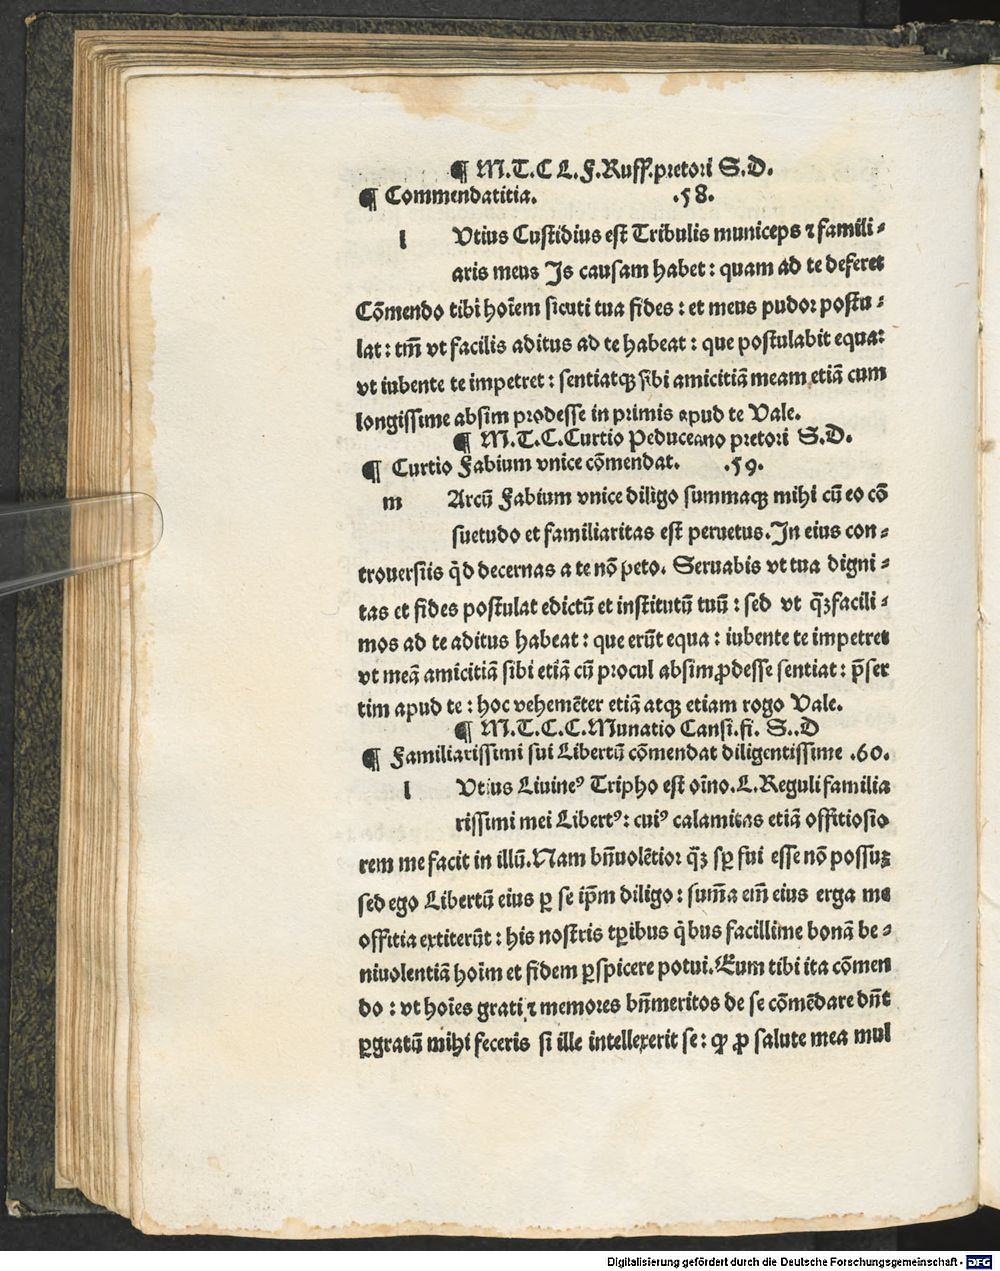 ¶ M.T.C L.F.Ruff.pretori S.D.
¶ Commendatitia. .58.
l Vtius Custidius est Tribulis municeps ⁊ famili⸗
aris meus Is causam habet : quam ad te deferet
Cōmendo tibi hoīem sicuti tua fides : et meus pudor postu⸗
lat : tm̄ vt facilis aditus ad te habeat : que postulabit equa:
vt iubente te impetret : sentiatqꝫ sibi amicitiā meam etiā cum
longissime absim prodesse in primis apud te Vale.
¶ M.T.C.Curtio Peduceano pretori S.D.
¶ Curtio Fabium vnice cōmendat. .59.
m Arcū Fabium vnice diligo summaqꝫ mihi cū eo cō
suetudo et familiaritas est peruetus.In eius con⸗
trouersiis q̄d decernas a te nō peto. Seruabis vt tua digni⸗
tas et fides postulat edictū et institutū tuū : sed vt q̄ꝫ facili⸗
mos ad te aditus habeat : que erūt equa : iubente te impetret
vt meā amicitiā sibi etiā cū procul absim ꝓdesse sentiat : p̄ser
tim apud te : hoc vehemēter etiā atqꝫ etiam rogo Vale.
¶ M.T.C.C.Munatio Cansi.fi. S..D
¶ Familiarissimi sui Libertū cōmendat diligentissime .60.
l Vtius Liuineꝰ Tripho est oīno.L.Reguli familia
rissimi mei Libertꝰ: cuiꝰ calamitas etiā offitiosio
rem me facit in illū.Nam bn̄uolētior q̄ꝫ sꝑ fui esse nō possuꝫ
sed ego Libertū eius ꝑ se ip̄m diligo : sum̄a em̄ eius erga me
offitia extiterūt : his nostris tꝑibus q̄bus facillime bonā be⸗
niuolentiā hoīm et fidem ꝑspicere potui.Eum tibi ita cōmen
do : vt hoīes grati ⁊ memores bn̄meritos de se cōmēdare dn̄t
ꝑgratū mihi feceris si ille intellexerit se : ꝙ ꝓ salute mea mul
Digitalisierung gefördert durch die Deutsche Forschungsgemeinschaft - DFG